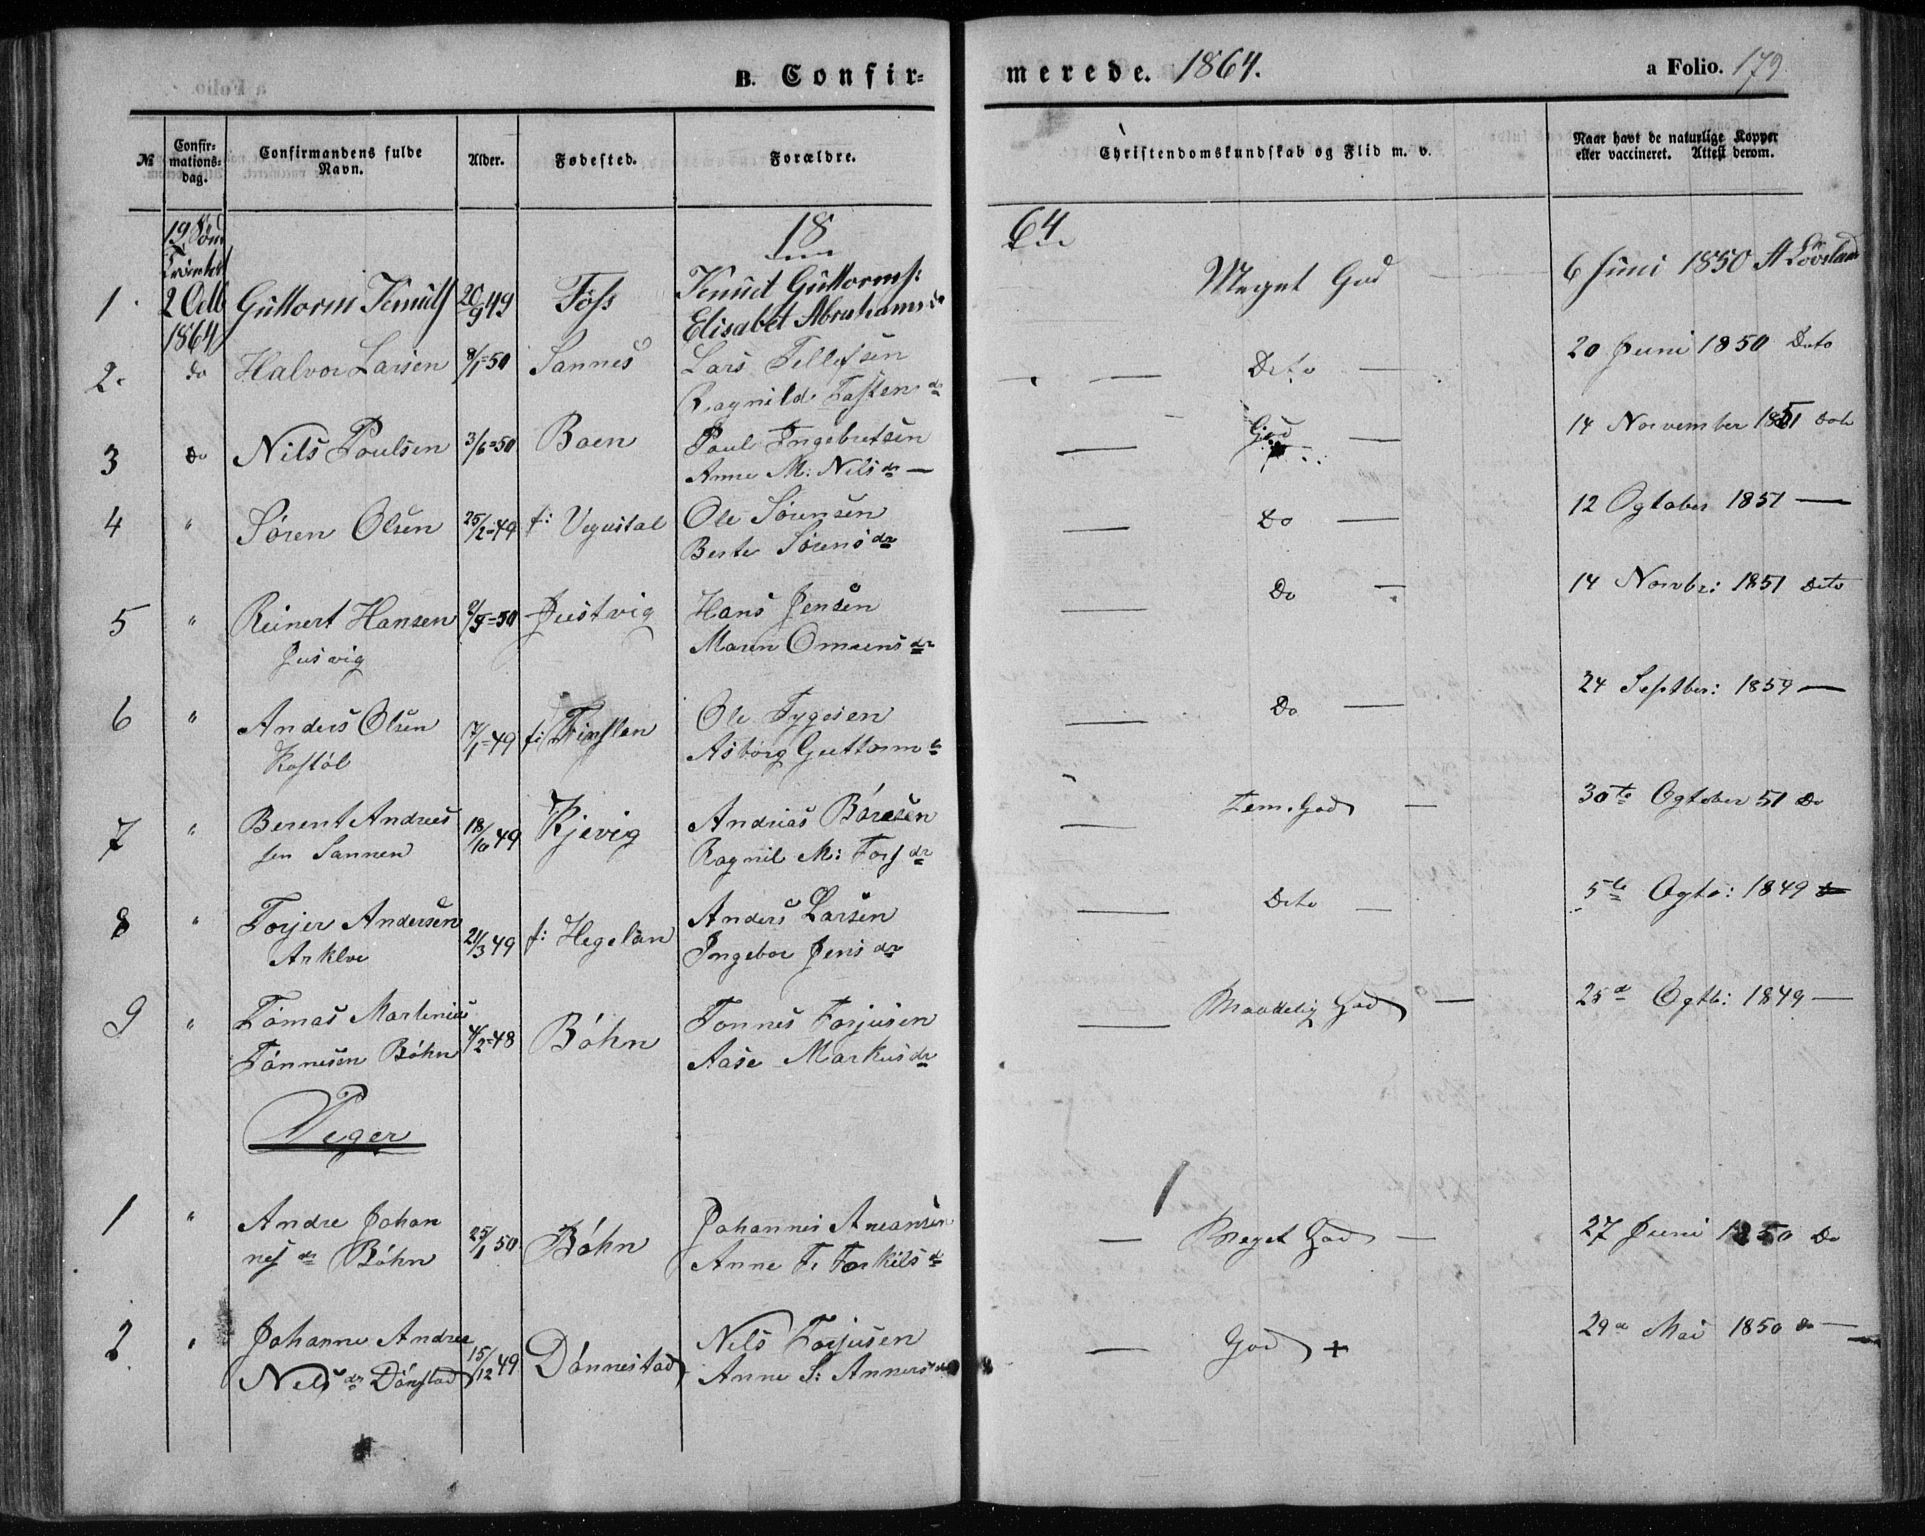 B. Confir-
merede. 1864.
a Folio. 179
№
Confir-
mations-
dag.
Confirmandens fulde
Navn.
Alder.
Fødested.
Forældre.
Christendomskundskab og Flid m. v.
Naar havt de naturlige Kopper
eller vaccineret. Attest derom.
18
64
1
19 Sønd
2 Octb
1864
Guttorm Knuds
20/9 49
Foss
Knud Guttorms:
Elisabet Abrahamsdr
Meget God
6 Juni 1850
2.
do
Halvor Larsen
8/1=50
Sannes
Lars Tellefsen
Ragnild Tastendr
Deto
20 Juni 1850 Deto
3
Do
Nils Poulsen
3/6=50
Boen
Poul Ingebretsen
Anne M: Nilsdr —
God
14 November 1851 Deto
4
"
Søren Olsen
25/2=49
f: Vegustal
Ole Sørensen
Berte Sørensdr
Do
12 Ogtober 1851 —
5
"
Reinert Hansen
Jusvig
=50
Justvig
Hans Jensen
Maren Omsensdr
Do
14 Novbr: 1851 Deto
6
"
Anders Olsen
Kostøl
7/1=49
Ole Tygesen
Asborg Guttorms
Do
24 Septber: 1859 —
7
"
Berent Andrees
sen Sannen
18/10 49
Kjevig
Andrias Børesen
Ragnil M: dr
Tem. God
30te Ogtober 51 Do
8
"
Torjer Andersen
Arklov
21/3 49
f: Hegelan
Anders Larsen
Ingebor Jensdr
Deto
5te Ogto: 1849
9
"
Tomas Martinius
Tønnesen Bøhn
4/2=48
Bøhn
Tonnes Torjusen
Aase Markusdr
Maadelig God
25d Ogtb: 1849 —
Peger
1
"
Andre Johan
nesdr Bøhn
25/1 50
Bøhn
Johannes Aneansen
Anne T. Torkilsdr
Meget God
27 Juni 1850 Do
2
"
Johanne Andrea
Nelsdr Dønstad
15/12 49
Dønnestad
Nels Torjusen
Anne S: Annersdr
God +
29de Mai 1850 Do —